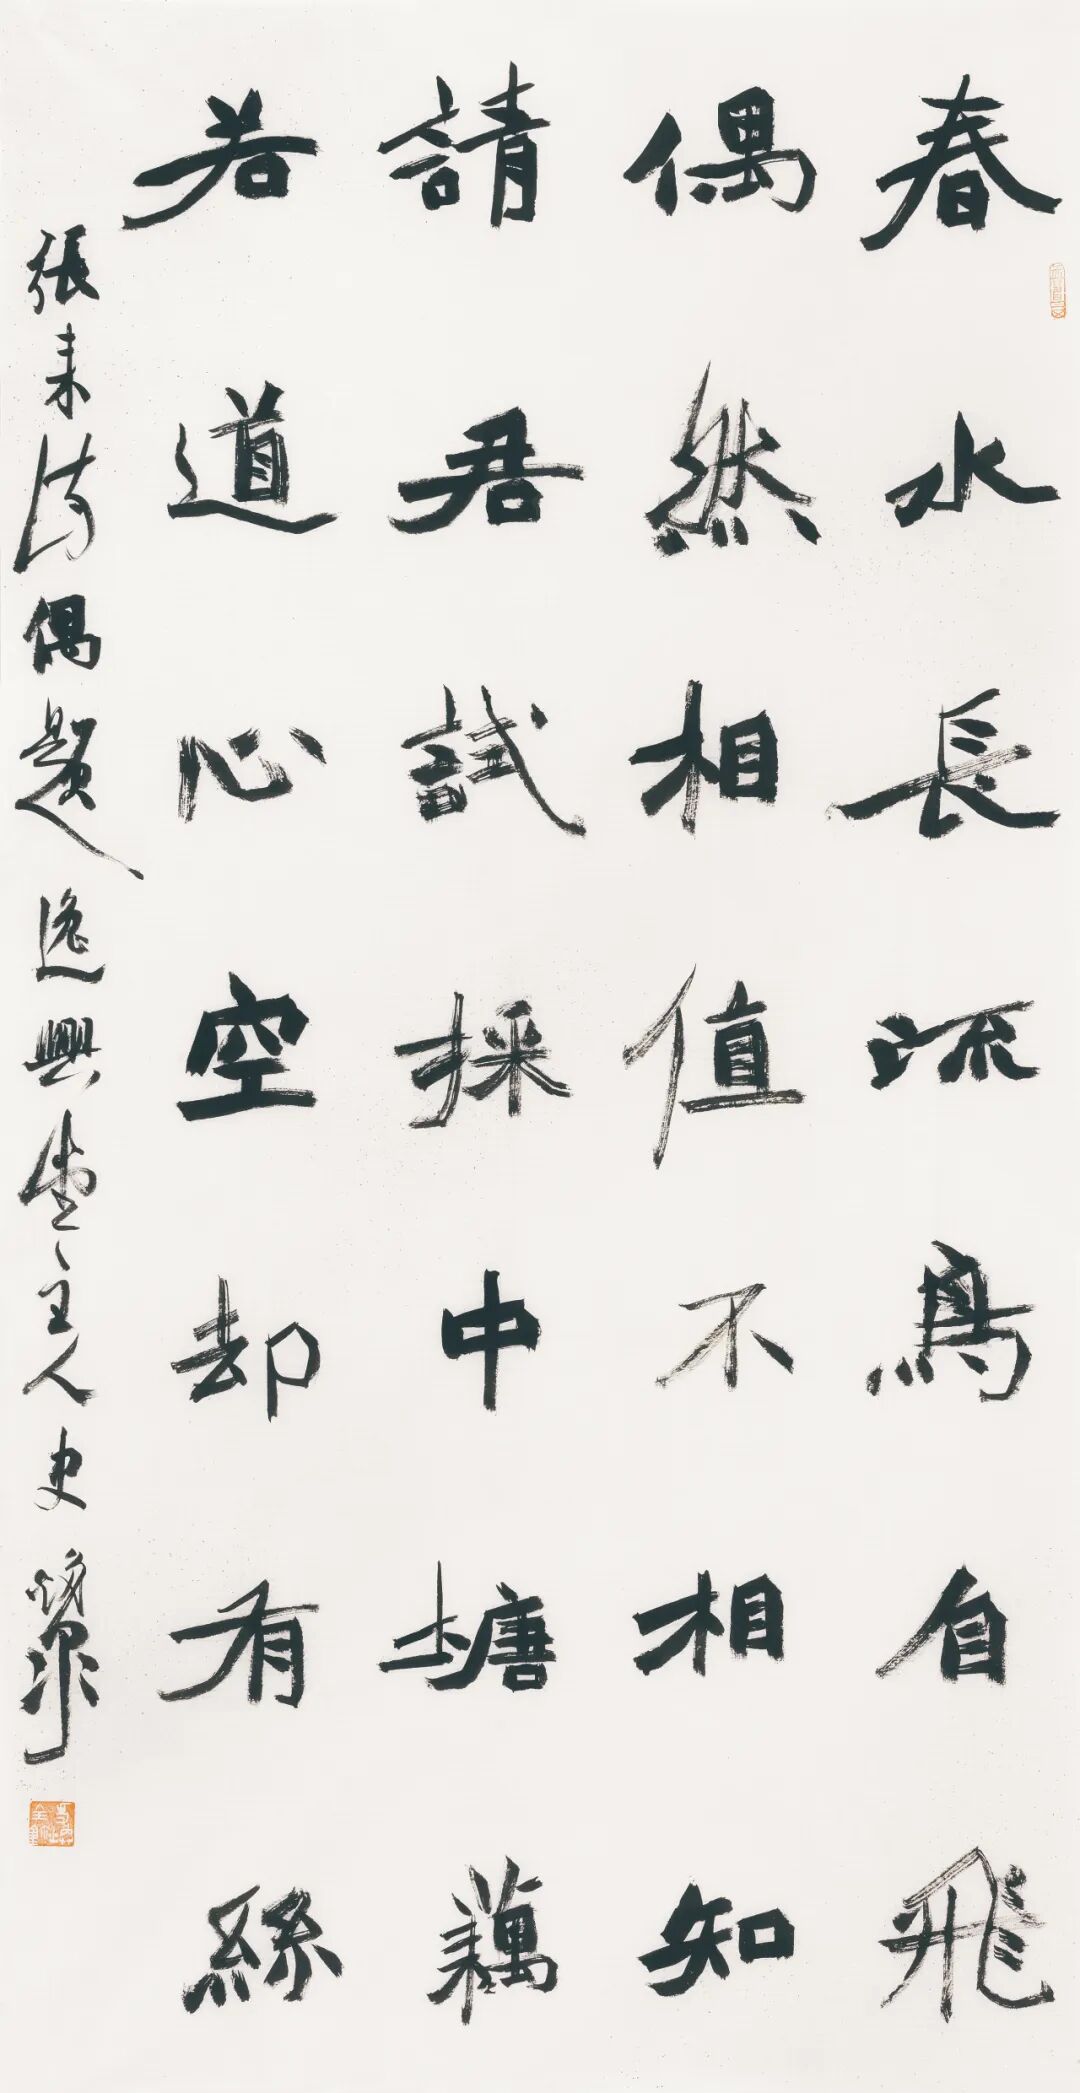 春水長流鳥自飛
偶然相值不相知
請君試採中塘藕
若道心空却有絲
張耒詩偶題逸興堂主人史